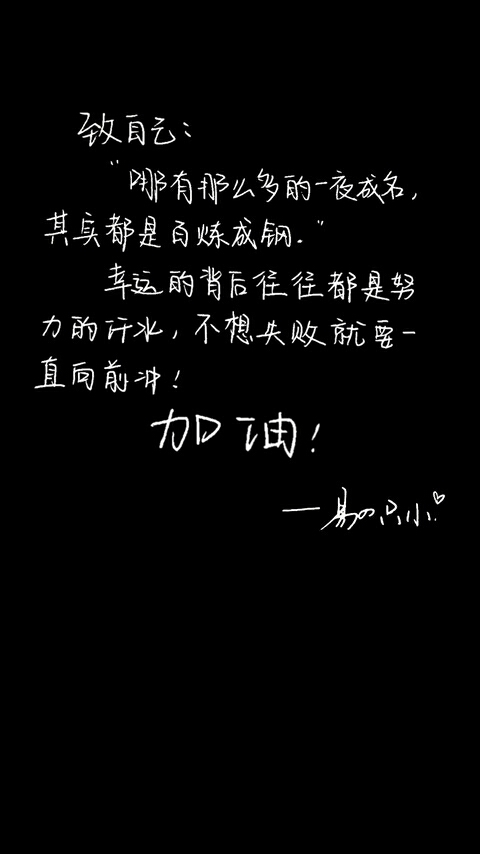 致自己：
“哪有那么多的一夜成名，
其实都是百炼成钢.”
幸运的背后往往都是努
力的汗水，不想失败就要一
直向前冲！
加油！